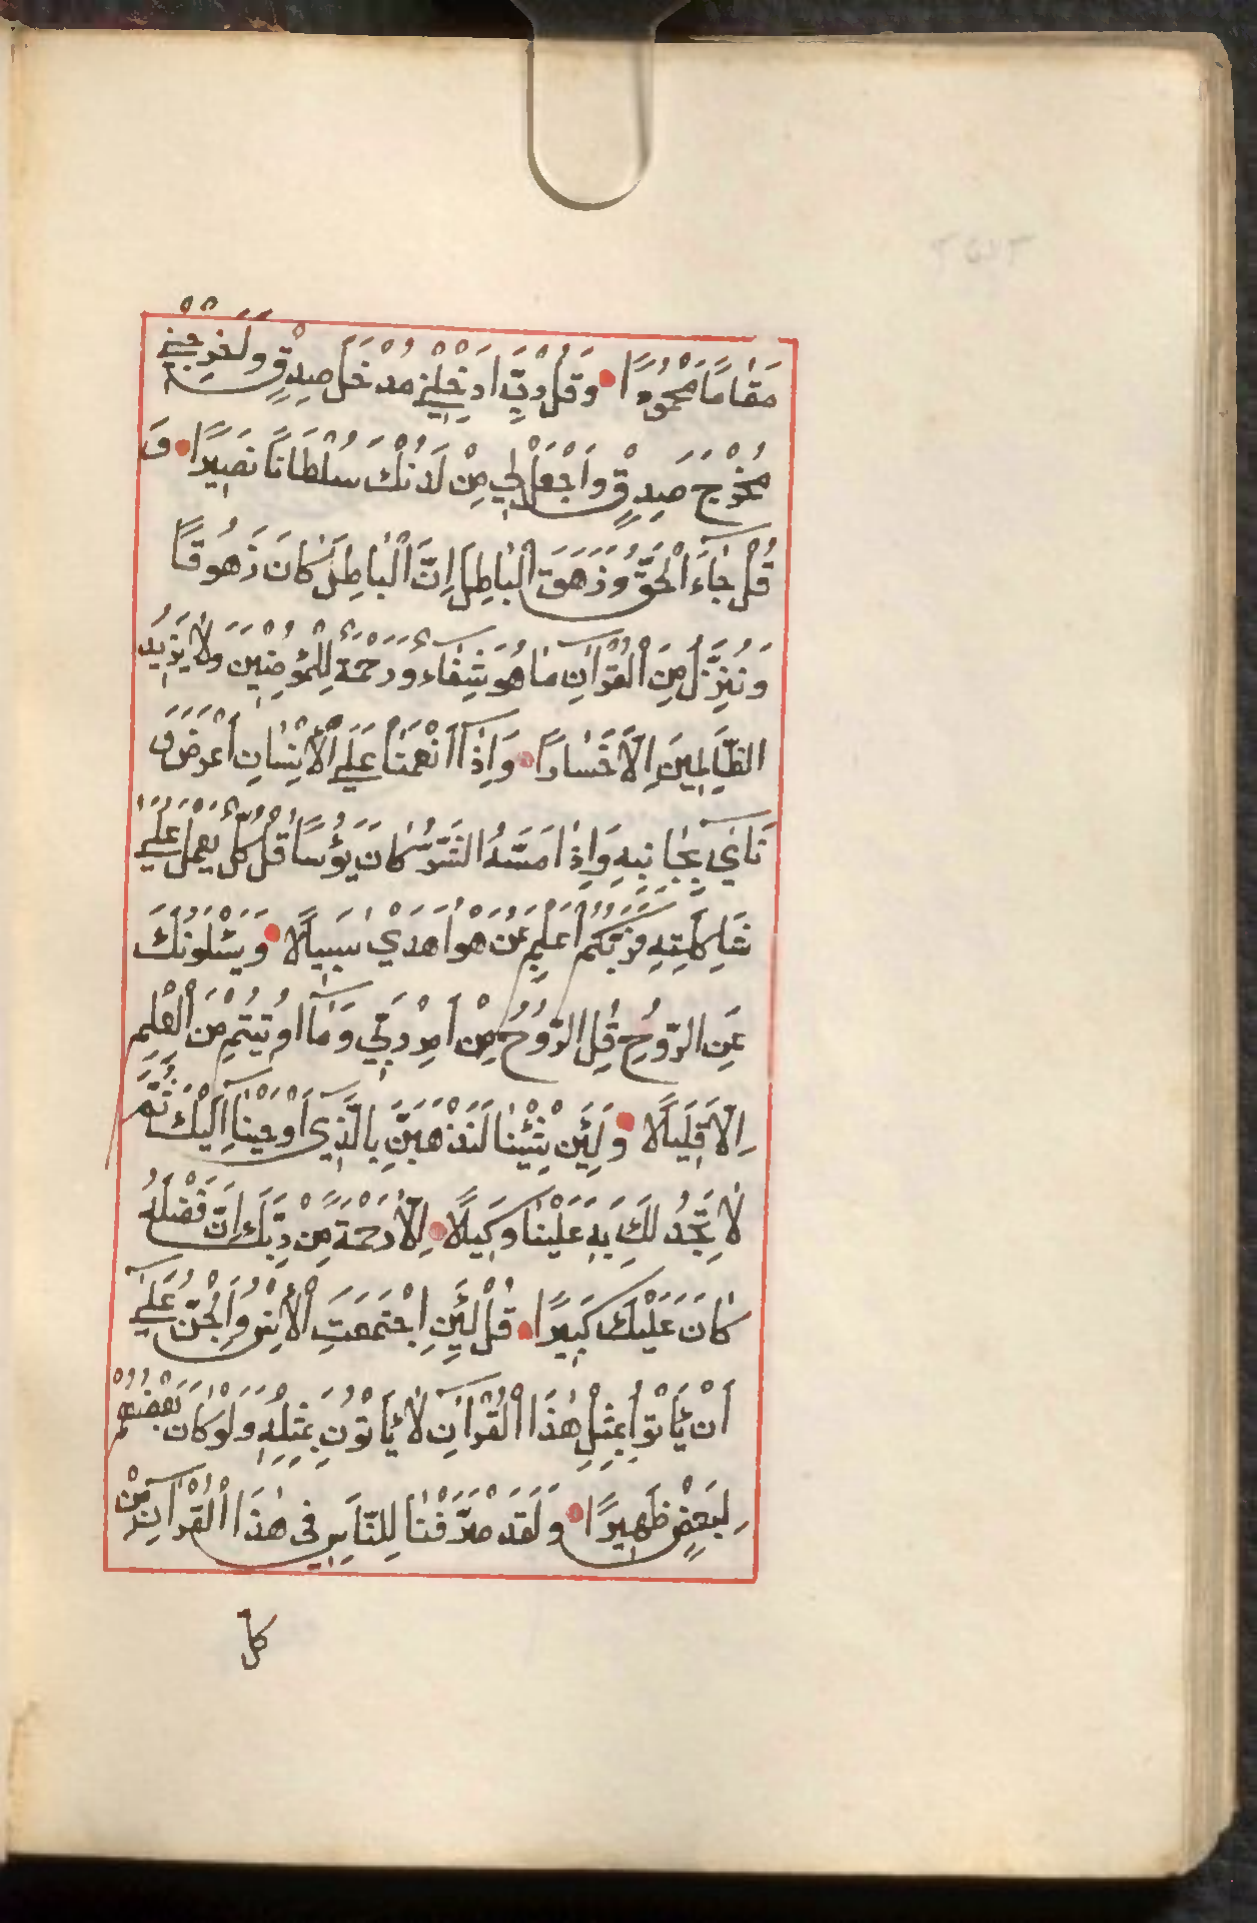 مَقَامًا مَحْمُودًا وَقُلْ رَبِّ اَدْخِلْنِي مُدْخَلَ صِدْقٍ وَاَخْرِجْنِي
مُخْرَجَ صِدْقٍ وَاجْعَلْ لِي مِنْ لَدُنْكَ سُلْطَانًا نَصِيرًا وَ
قُلْ جَآءَ الْحَقُّ وَزَهَقَ الْبَاطِلُ اِنَّ الْبَاطِلَ كَانَ زَهُوقًا
وَنُنَزِّلُ مِنَ الْقُرْآنِ مَا هُوَ شِفَآءٌ وَرَحْمَةٌ لِلْمُؤْمِنِينَ وَلَا يَزِيدُ
الظَّالِمِينَ اِلَّا خَسَارًا وَاِذَآ اَنْعَمْنَا عَلَى الْاِنْسَانِ اَعْرَضَ وَ
نَاٰى بِجَانِبِهِ وَاِذَا مَسَّهُ الشَّرُّ كَانَ يَؤُسًا قُلْ كُلٌّ يَعْمَلُ عَلَى
شَاكِلَتِهِ فَرَبُّكُمْ اَعْلَمُ بِمَنْ هُوَ اَهْدَى سَبِيلًا وَيَسْئَلُونَكَ
عَنِ الرُّوحِ قُلِ الرُّوحُ مِنْ اَمْرِ رَبِّي وَمَآ اُوتِيتُمْ مِنَ الْعِلْمِ
اِلَّا قَلِيلًا وَلَئِنْ شِئْنَا لَنَذْهَبَنَّ بِالَّذِي اَوْحَيْنَآ اِلَيْكَ ثُمَّ
لَا تَجِدُ لَكَ بِهِ عَلَيْنَا وَكِيلًا اِلَّا رَحْمَةً مِنْ رَبِّكَ اِنَّ فَضْلَهُ
كَانَ عَلَيْكَ كَبِيرًا قُلْ لَئِنِ اجْتَمَعَتِ الْاِنْسُ وَالْجِنُّ عَلَى
اَنْ يَاْتُوا بِمِثْلِ هٰذَا الْقُرْآنِ لَا يَاْتُونَ بِمِثْلِهِ وَلَوْ كَانَ بَعْضُهُمْ
لِبَعْضٍ ظَهِيرًا وَلَقَدْ صَرَّفْنَا لِلنَّاسِ فِي هٰذَا الْقُرْآنِ مِنْ
كل